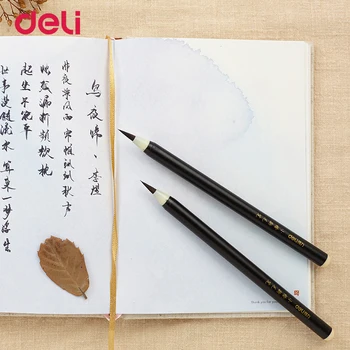 deli
烏夜啼 · 李煜
昨夜風兼雨
帘幃颯颯秋声
燭殘漏断頻欹枕
起坐不能平
世事漫随流水
算来一夢浮生
deli
deli